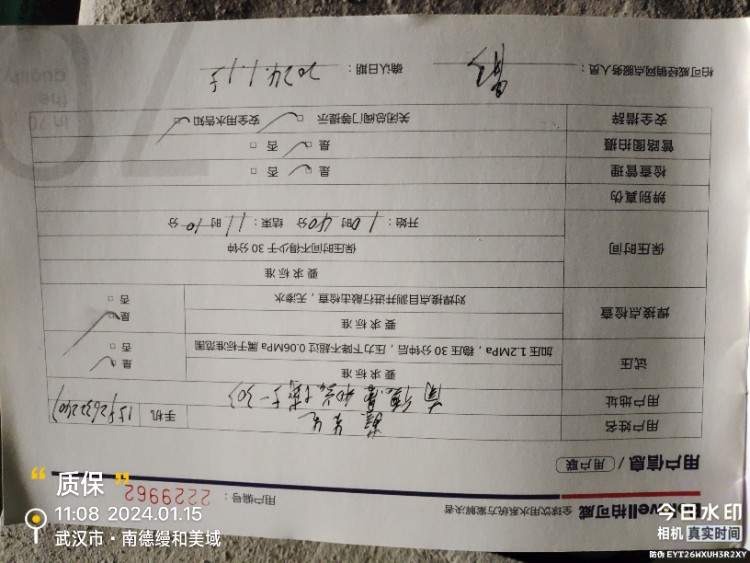 柏可威 全球饮用水系统方案解决者
用户编号：2229962
用户信息 / 用户联
用户姓名 手机
用户地址
试压 要求标准 是
加压 1.2MPa，稳压 30 分钟后，压力下降不超过 0.06MPa 属于标准范围 否
焊接点检查 要求标准 是
对焊接点目测并进行敲击检查，无渗水 否
保压时间 要求标准
保压时间不得少于 30 分钟
开始：10 时 40 分 结束：11 时 10 分
辨别真伪
检查管理 是 否
管路图拍摄 是 否
安全措辞 关闭总阀门等提示 安全用水告知
柏可威经销网点服务人员： 确认日期：2024.1.15
in 70
the
quality
70
质保
11:08 2024.01.15
武汉市·南德缦和美域
今日水印
相机 真实时间
防伪 EYT26WXUH3R2XY